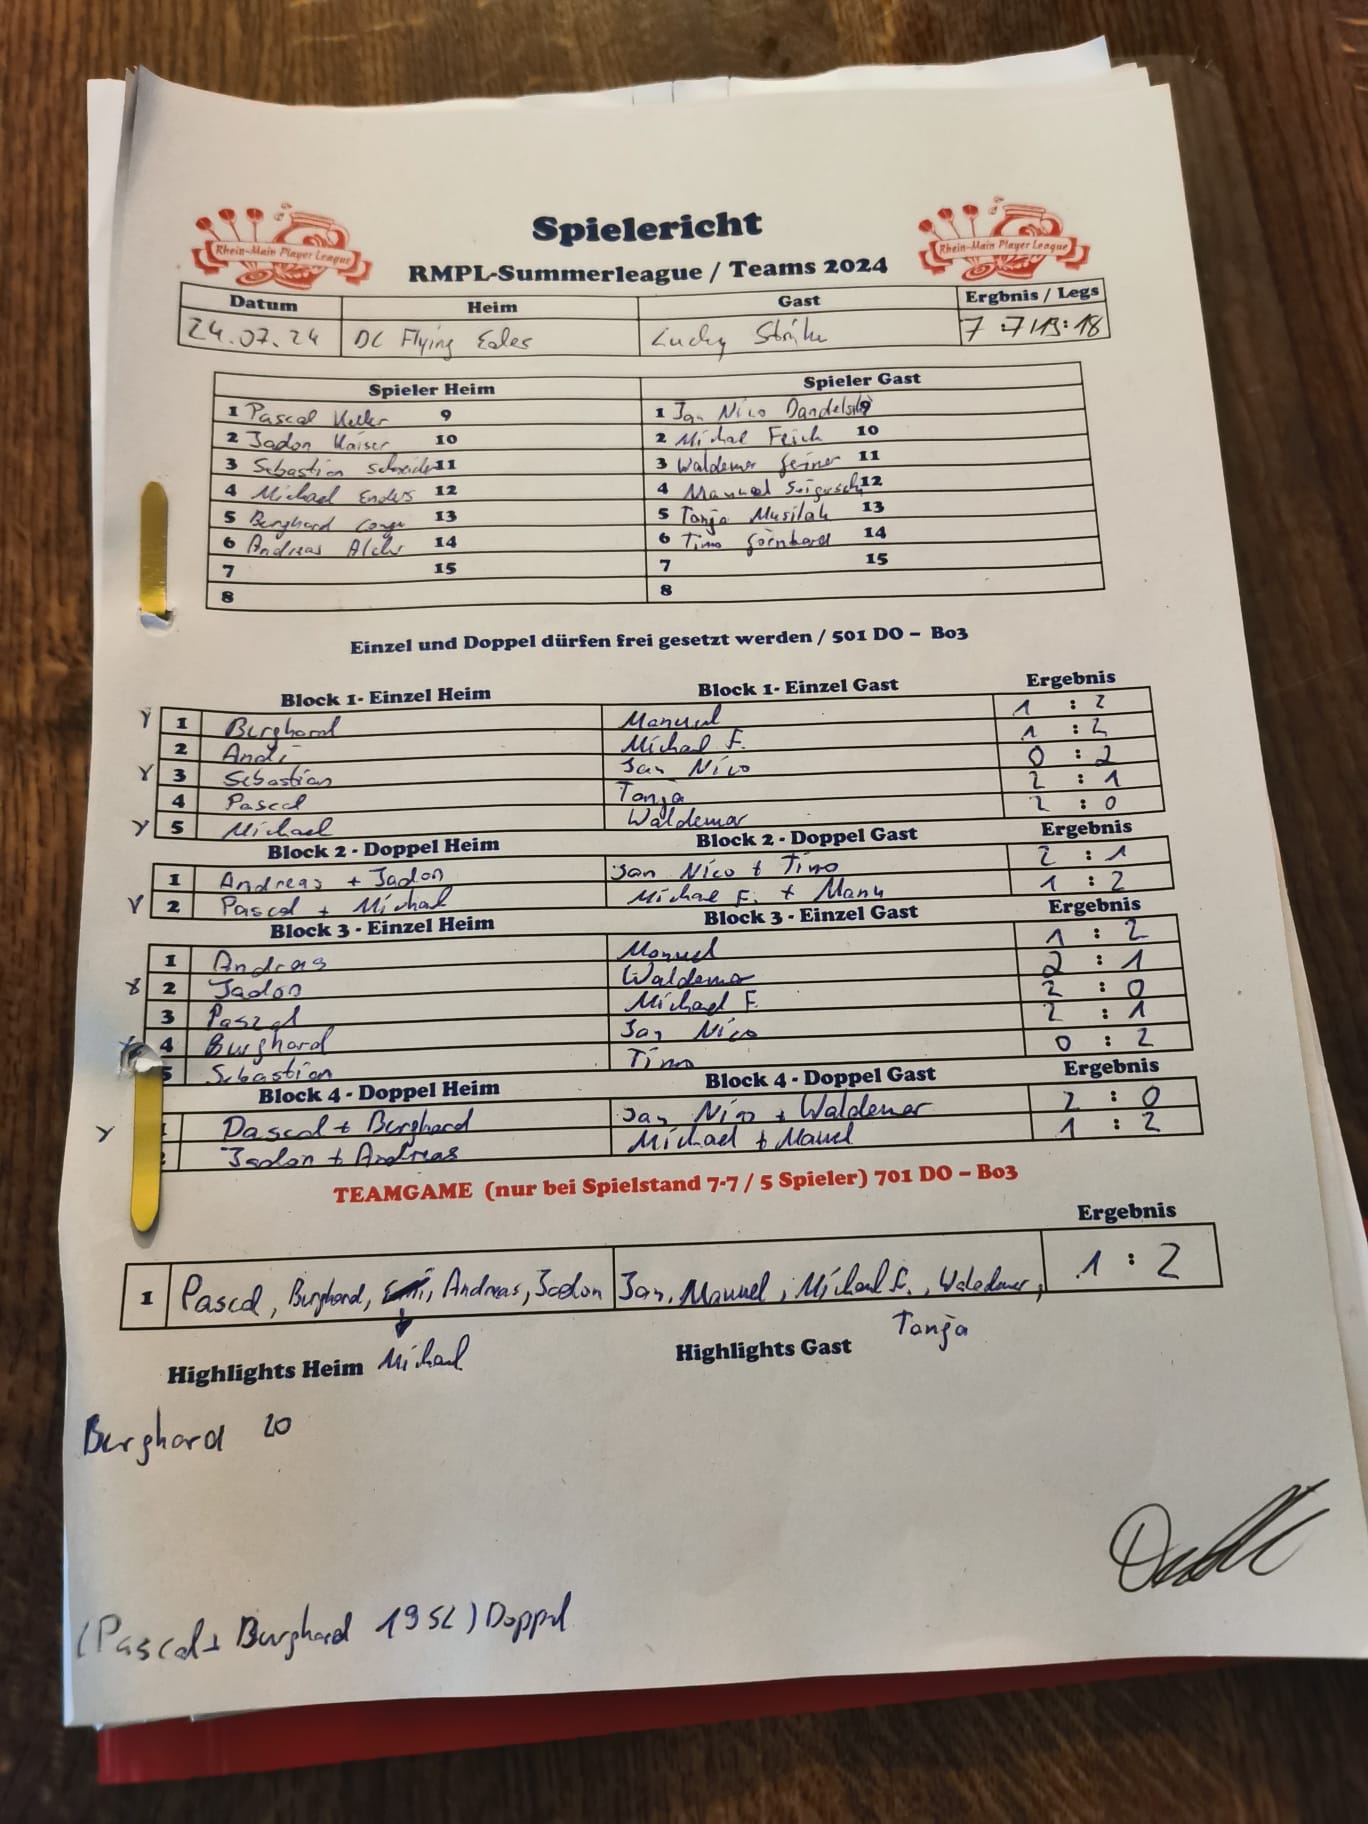 Rhein-Main Player League
Spielericht
Rhein-Main Player League
RMPL-Summerleague / Teams 2024
Datum Heim Gast Ergbnis / Legs
24.07.24 DC Flying Eales Lucky Strike 7:7/19:18
Spieler Heim Spieler Gast
1 Pascal Keller 9 1 Jan Nico Dandelski 9
2 Jadon Kaiser 10 2 Michal Frich 10
3 Sebastian Schneider 11 3 Waldemar 11
4 Michael Enders 12 4 Manuel 12
5 Burghard 13 5 Tanja Musilak 13
6 Andreas 14 6 Timo 14
7 15 7 15
8 8
Einzel und Doppel dürfen frei gesetzt werden / 501 DO – Bo3
Block 1- Einzel Heim Block 1- Einzel Gast Ergebnis
1 Burghard Manuel 1 : 2
2 Andi Michal F. 1 : 2
3 Sebastian Jan Nico 0 : 2
4 Pascal Tanja 2 : 1
5 Michael Waldemar 2 : 0
Block 2 - Doppel Heim Block 2 - Doppel Gast Ergebnis
1 Andreas + Jadon Jan Nico + Timo 2 : 1
2 Pascal + Michael Michael F. + Manu 1 : 2
Block 3 - Einzel Heim Block 3 - Einzel Gast Ergebnis
1 Andreas Manuel 1 : 2
2 Jadon Waldemar 2 : 1
3 Pascal Michael F. 2 : 0
4 Burghard Jan Nico 2 : 1
5 Sebastian Timo 0 : 2
Block 4 - Doppel Heim Block 4 - Doppel Gast Ergebnis
1 Pascal + Burghard Jan Nico + Waldemar 2 : 0
2 Jadon + Andreas Michael + Manuel 1 : 2
TEAMGAME (nur bei Spielstand 7-7 / 5 Spieler) 701 DO – Bo3
Ergebnis
1 Pascal, Burghard, Andreas, Jadon Jan, Manuel, Michael F., Waldemar, 1 : 2
Tanja
Highlights Heim Michael Highlights Gast
Burghard 20
(Pascal + Burghard 19 SL) Doppel